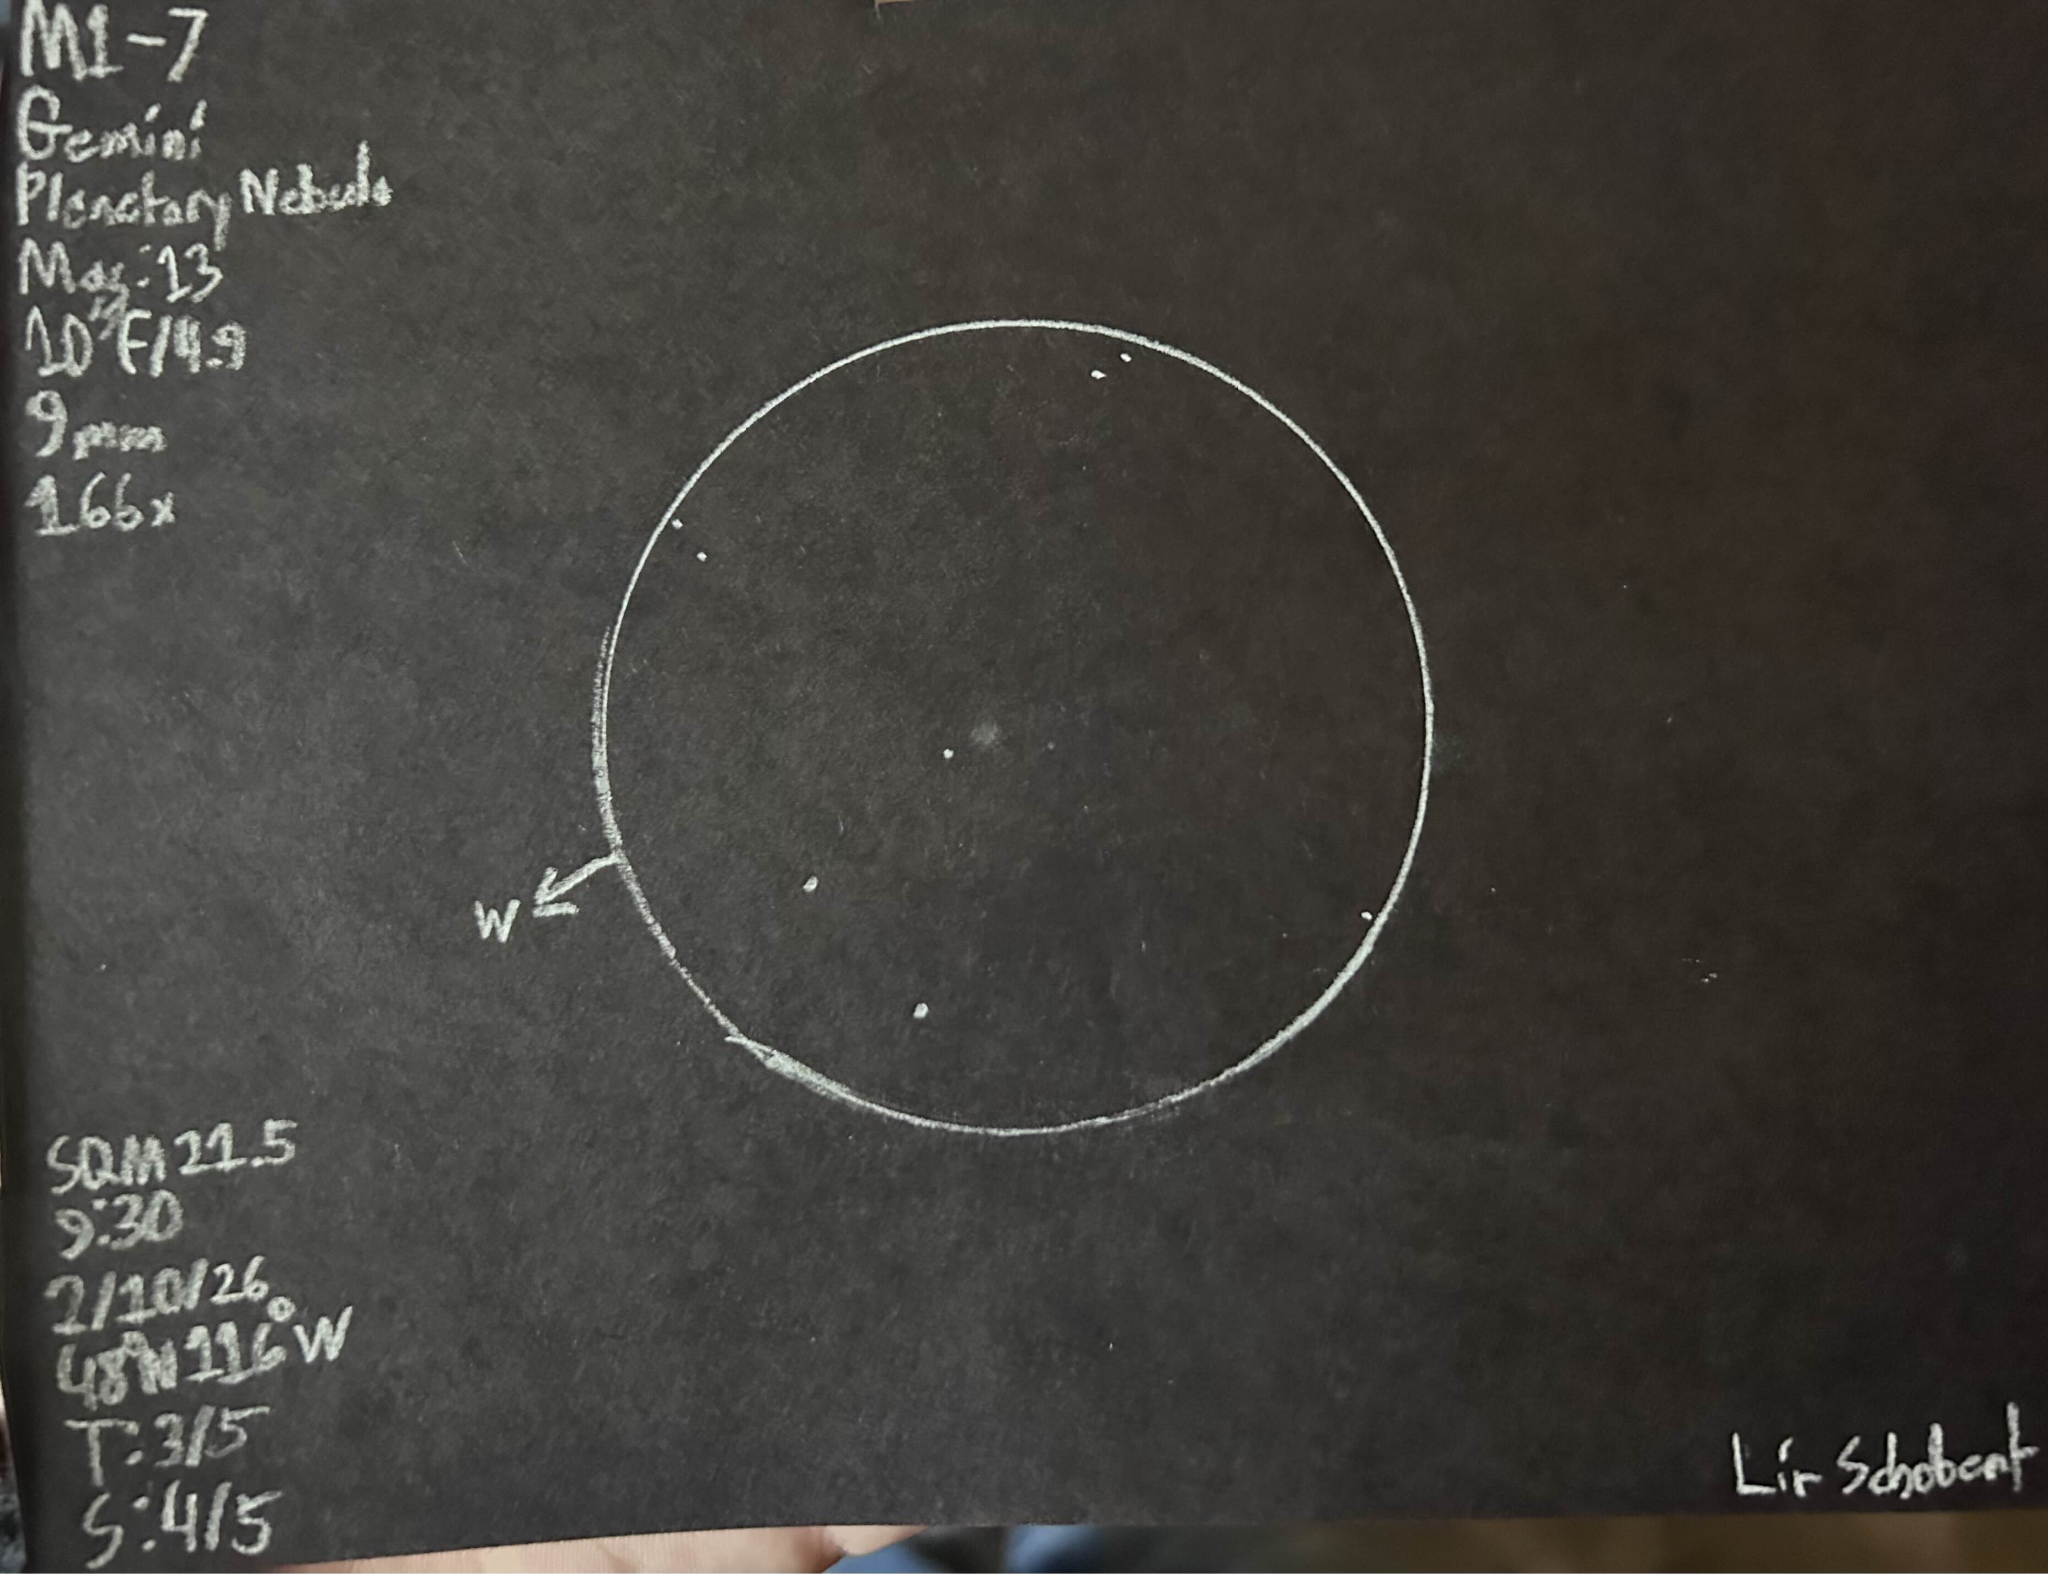 M1-7
Gemini
Planetary Nebula
Mag:13
10" F/4.9
9mm
166x
W
SQM 21.5
9:30
2/10/26
48°N 116°W
T:3/5
S:4/5
Lir Schobert